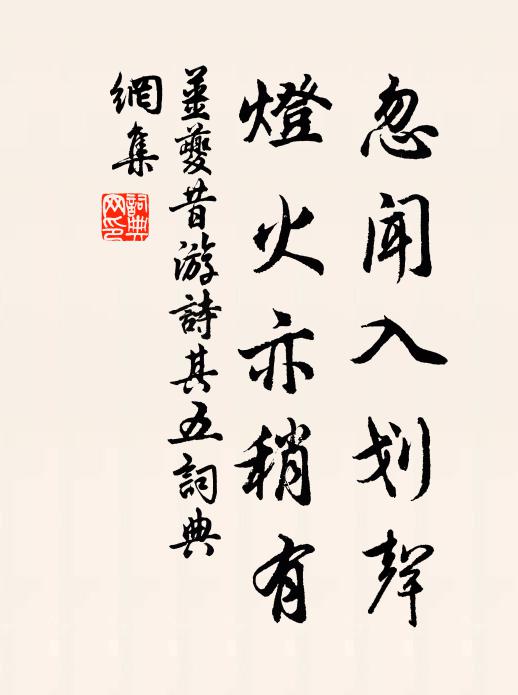 忽闻入划聲
燈火亦稍有
姜夔昔游詩其五詞典
網集
詞典
网印